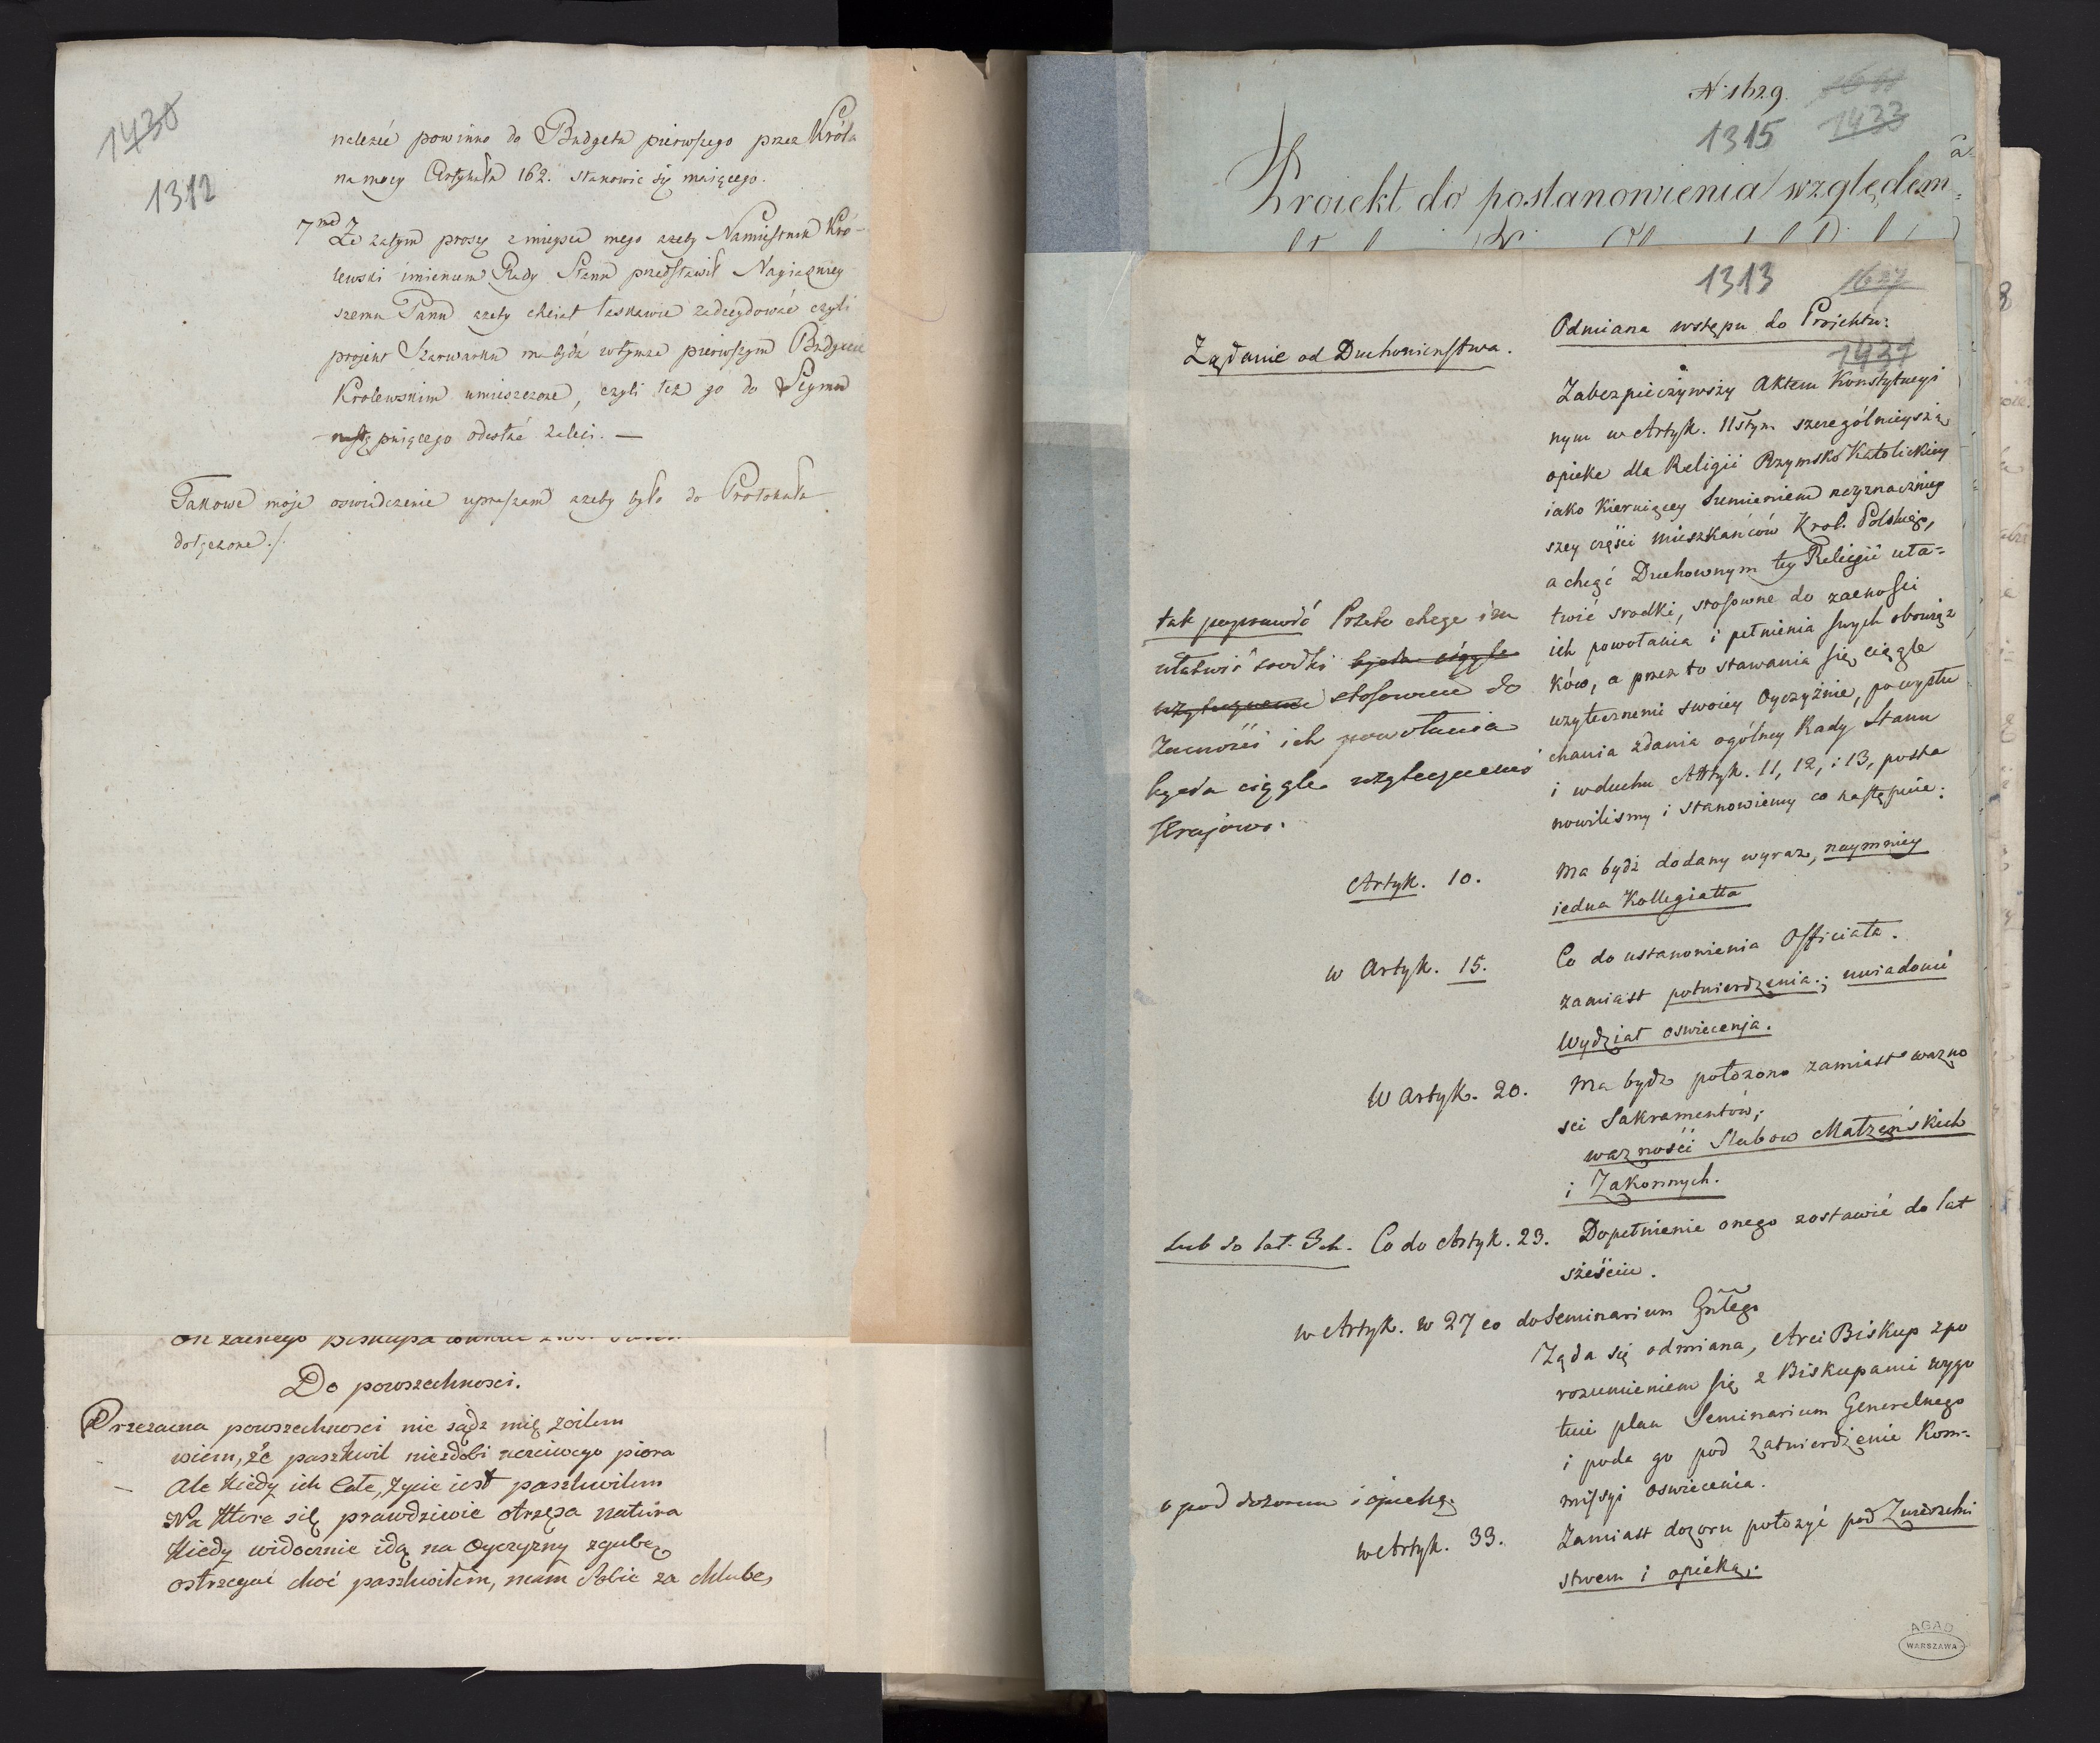 1430
1312
należeć powinno do Budgetu pierwszego przez Króla
na mocy Artykułu 162. stanowić się maiącego.
7mo Że zatym proszę z mieysca mego ażeby Namiestnik Kró-
lewski imieniem Rady Stanu przedstawił Nayiaśniey
szemu Panu ażeby chciał łaskawie zadecydować czyli
projekt Szarwarku ma bydź w tymże pierwszym Budgecie
Krolewskim umieszczone, czyli też go do Seymu
następuiącego odesłać zaleci. —
Takowe moje oswiadczenie upraszam azeby było do Protokułu
dołączone ./.
Do powszechnosci.
Przezacna powszechnosci nie sądz mię zoilem
wiem, że paszkwil niezdobi uczciwego piora
— Ale kiedy ich Całe, życie iest paszkwilem
Na ktore się prawdziwie otrzęsa natura
Kiedy widocznie idą na Oyczyzny zgubę
ostrzegać choć paszkwilem, mam Sobie za chlubę,
N. 1629.
1315 1433
Proiekt do postanowienia względem
1313 1627
Odmiana wstępu do Projektu:
Żądanie od Duchowieństwa.
1431
Zabezpieczywszy Aktem Konstytucyi
nym w Artyk. 11stym szczególnieyszą
opiekę dla Religii Rzymsko Katolickiey
iako kieruiącey Sumieniem nayznaczniey
szey części mieszkańców Krol. Polskiego,
a chcąć Duchownym tey Religii uła=
twić srodki, stosowne do zacności
ich powołania i pełnienia swych obowiąz
ków, a przez to stawania się ciągle
użytecznemi swoiey Oyczyźnie, po wysłu
chania zdania ogólney Rady Stanu
i w duchu Artyk. 11, 12, i 13, posta
nowilismy i stanowiemy co następuie:
tak poprawić Przeto chcąc im
ułatwić srodki będą ciągle
użytecznemi stosowne do
Zacności ich powołania
będą ciągle użytecznemi
Krajowi.
Artyk. 10.
Ma bydź dodany wyraz, naymniey
iedna Kollegiatta
w Artyk. 15.
Co do ustanowienia Officiała.
zamiast potwierdzenia; uwiadomi
Wydział oswiecenia.
W Artyk. 20.
Ma bydz położono zamiast wazno
sci Sakramentów;
wazności Slubow Małzęńskich
i Zakonnych.
lub do lat. 3ch. Co do Artyk. 23. Dopełnienie onego zostawić do lat
sześciu.
w Artyk. w 27 co do Seminarium Gnłego
Żąda się odmiana, Arci Biskup z po
rozumieniem się z Biskupami wygo
tuie plan Seminarium Generelnego
i poda go pod Zatwierdzenie Kom-
missyi oswiecenia.
pod dozorem i opieką.
w Artyk. 33.
Zamiast dozoru położyć pod Zwierzchni
stwem i opieką.
AGAD
WARSZAWA